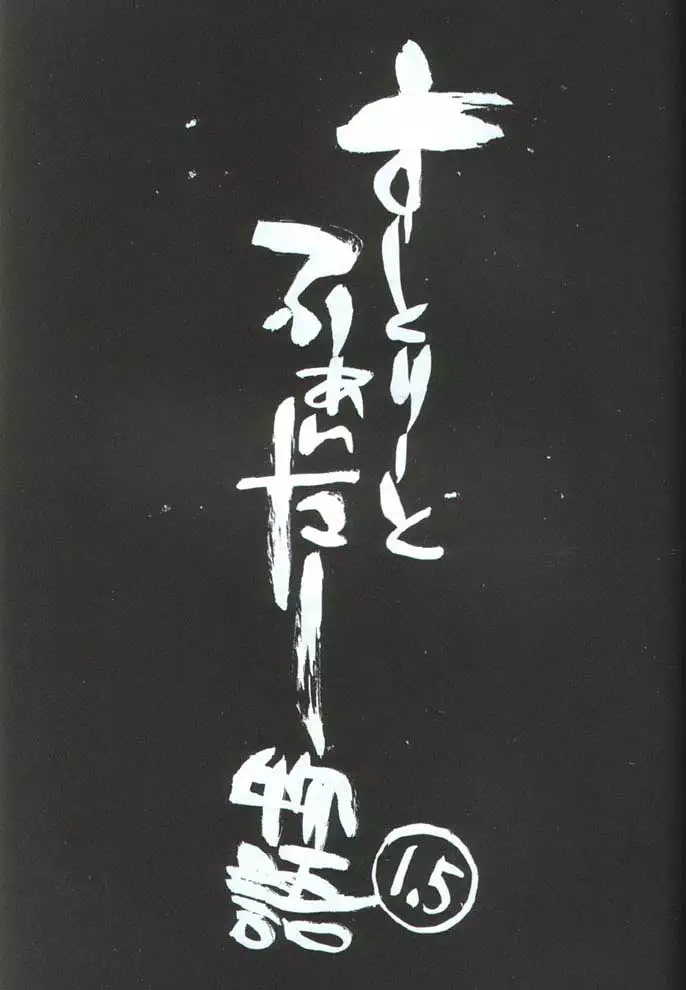 すとりーと
ふぁいたー物語
1.5